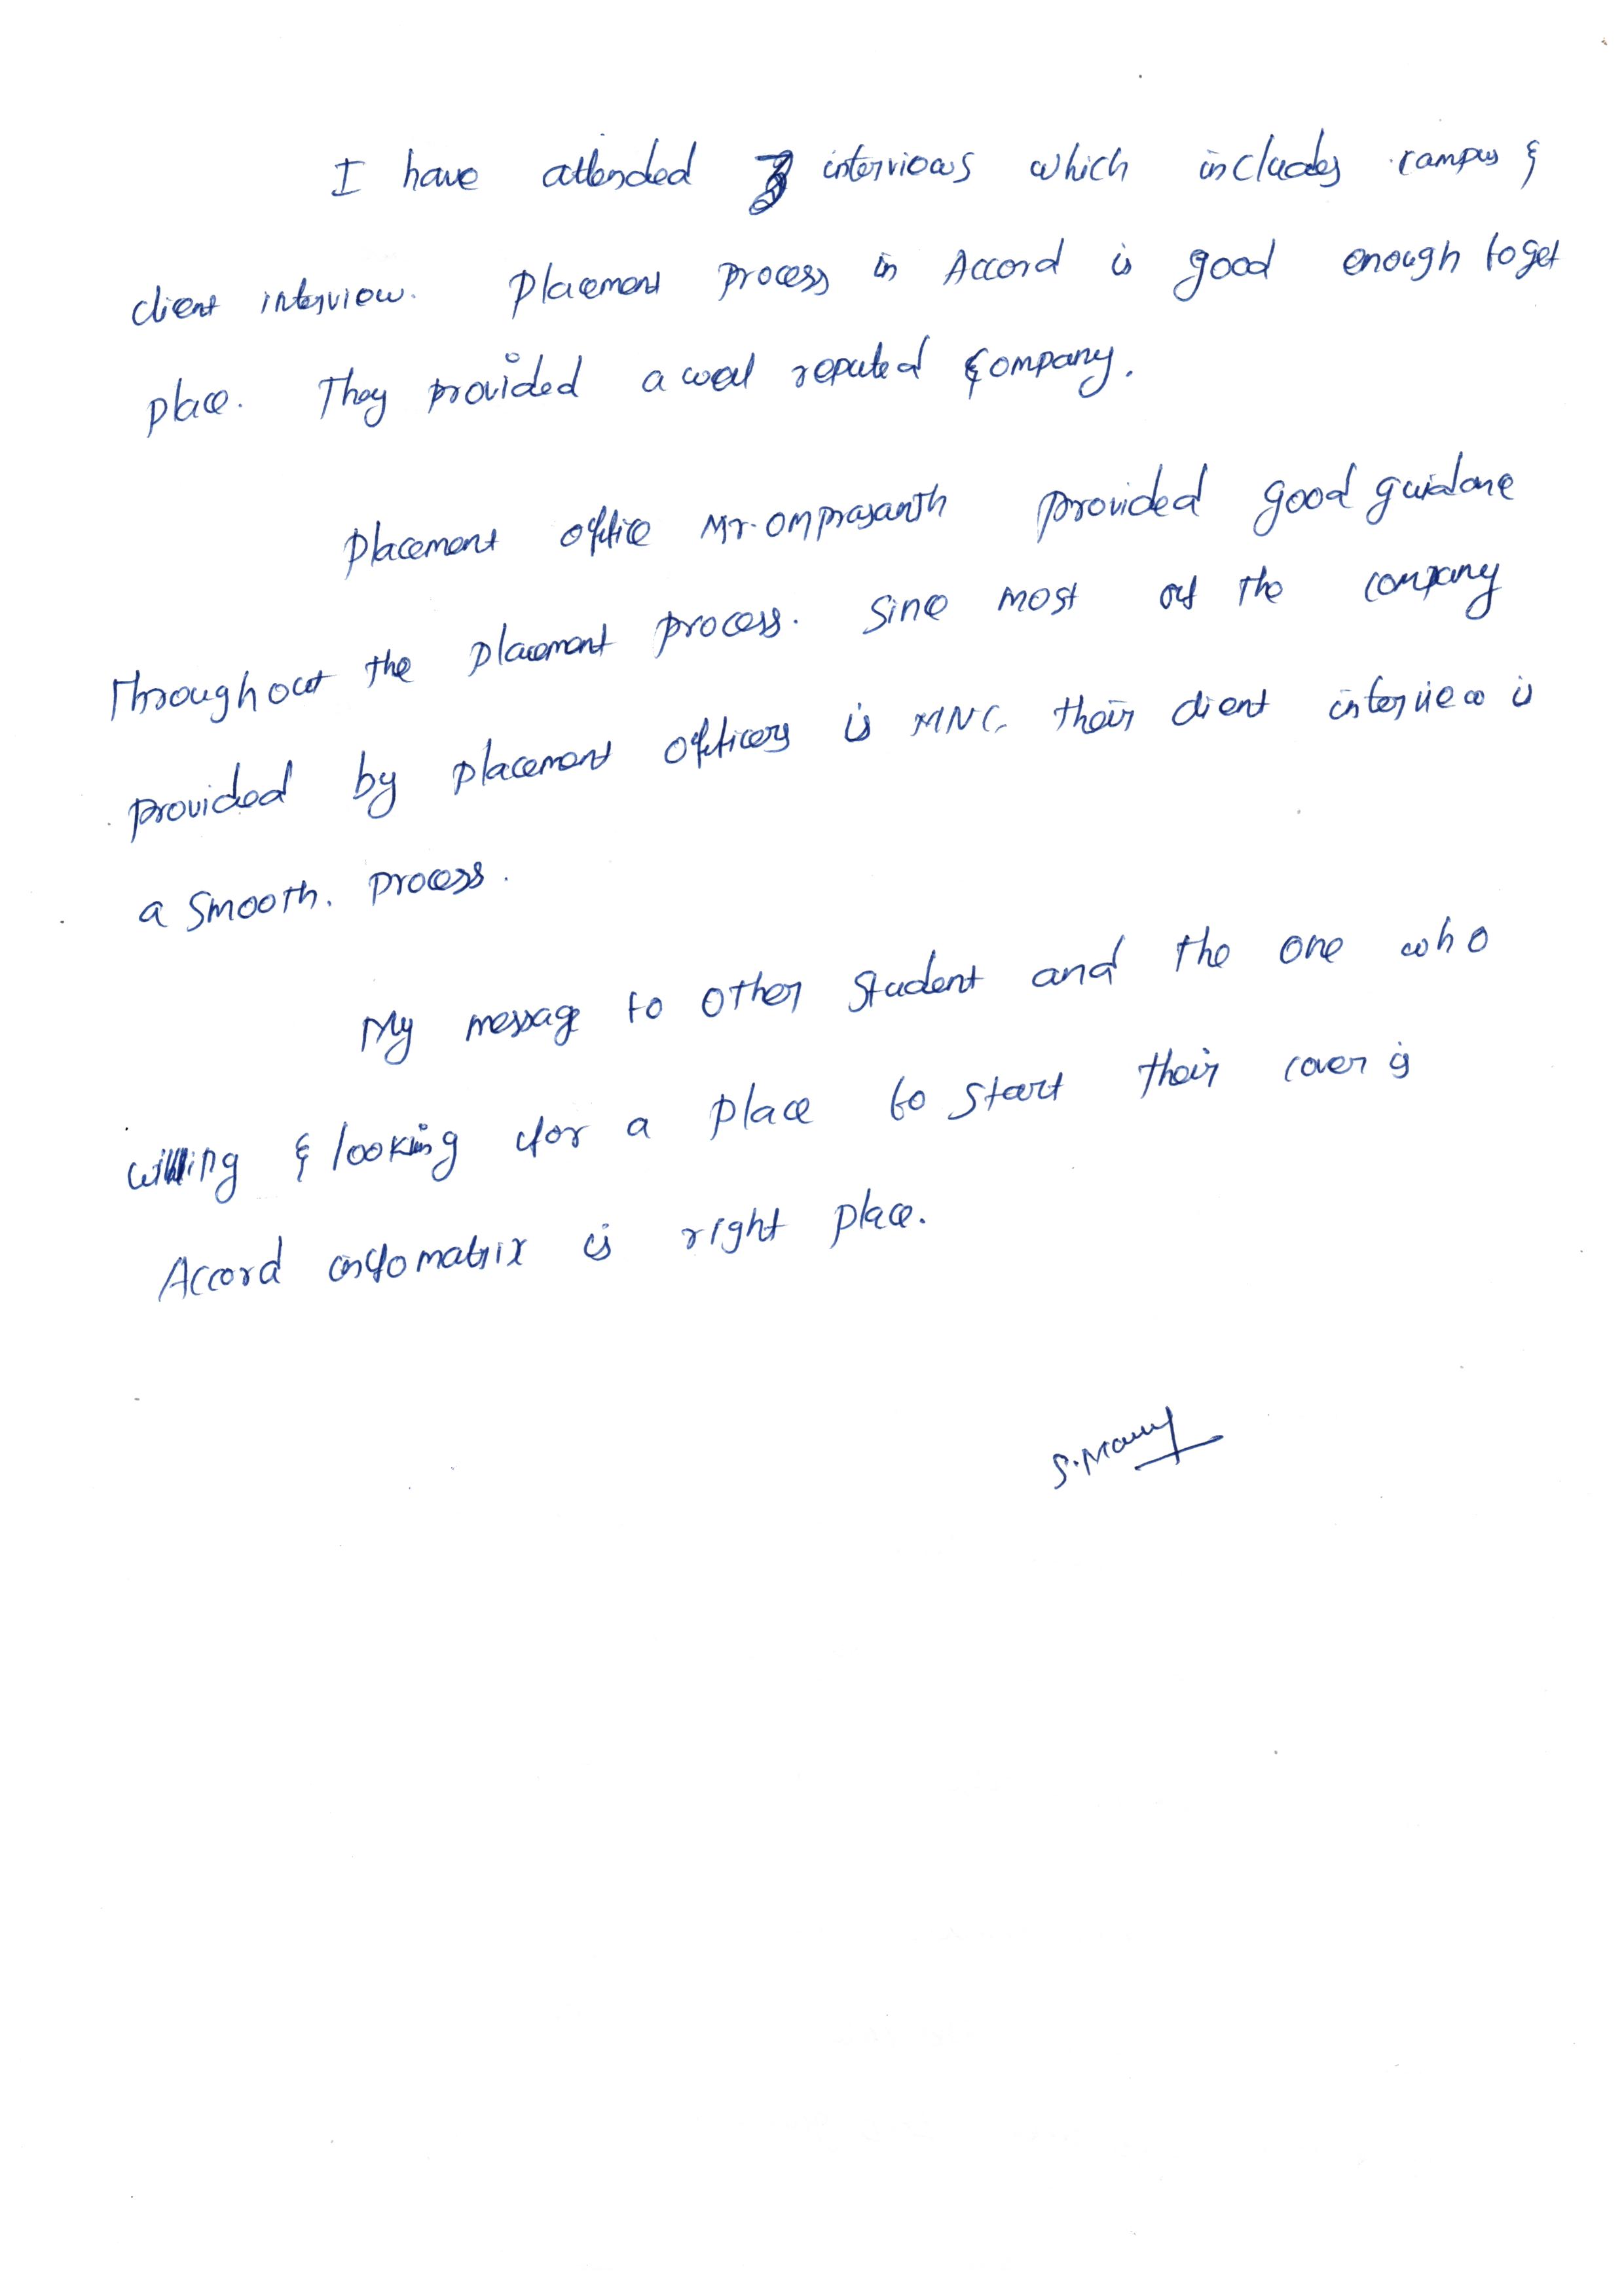 I have attended 3 interviews which includes campus &
client interview. Placement process in Accord is good enough to get
place. They provided a well reputed company.
Placement office Mr. Omprasanth provided good guidane
Throughout the placement process. Sine most of the company
provided by placement officers is MNC, their client interview is
a smooth. process.
My message to other student and the one who
willing & looking for a place to start their carer is
Accord infomatrix is right place.